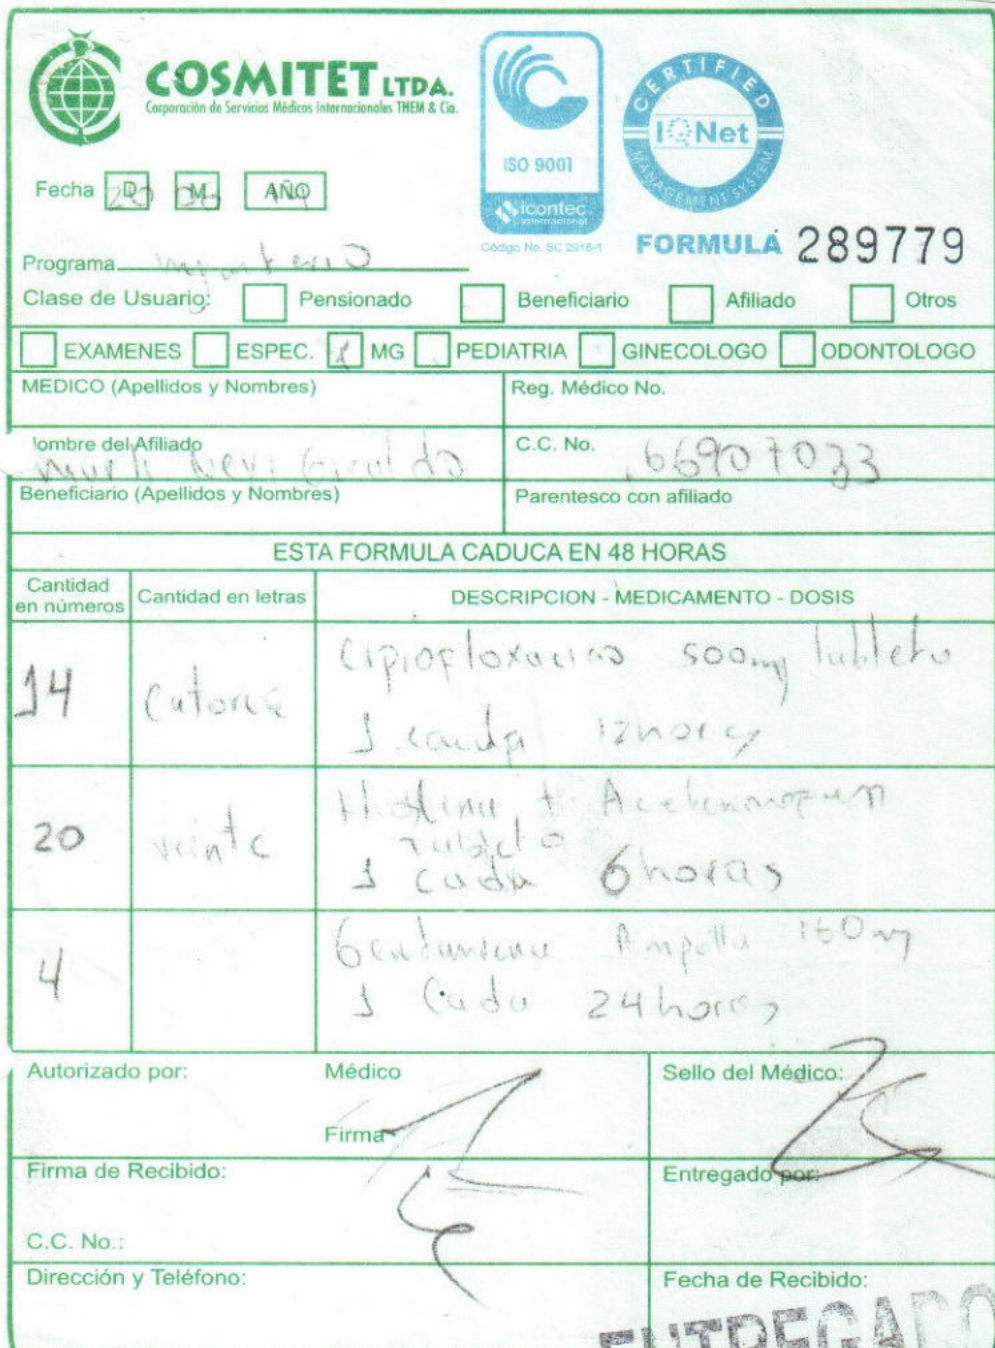 COSMITET LTDA.
Corporación de Servicios Médicos Internacionales THEM & Cia.
ISO 9001
icontec
internacional
Código No. SC 2918-1
CERTIFIED
IQNet
MANAGEMENT SYSTEM
Fecha D M AÑO
20 06
FORMULA 289779
Programa
Clase de Usuario: Pensionado Beneficiario Afiliado Otros
EXAMENES ESPEC. X MG PEDIATRIA GINECOLOGO ODONTOLOGO
MEDICO (Apellidos y Nombres) Reg. Médico No.
Nombre del Afiliado C.C. No. 66907033
Giraldo
Beneficiario (Apellidos y Nombres) Parentesco con afiliado
ESTA FORMULA CADUCA EN 48 HORAS
Cantidad en números Cantidad en letras DESCRIPCION - MEDICAMENTO - DOSIS
14 Catorce Cipiofloxacino 500mg tableta
1 cada 12 horas
20 veinte + Acetaminofen
Tableta
1 cada 6 horas
4 Gentamicina Ampolla 160 mg
1 Cada 24 horas
Autorizado por: Médico Sello del Médico:
Firma
Firma de Recibido: Entregado por:
C.C. No.:
Dirección y Teléfono: Fecha de Recibido:
ENTREGADO